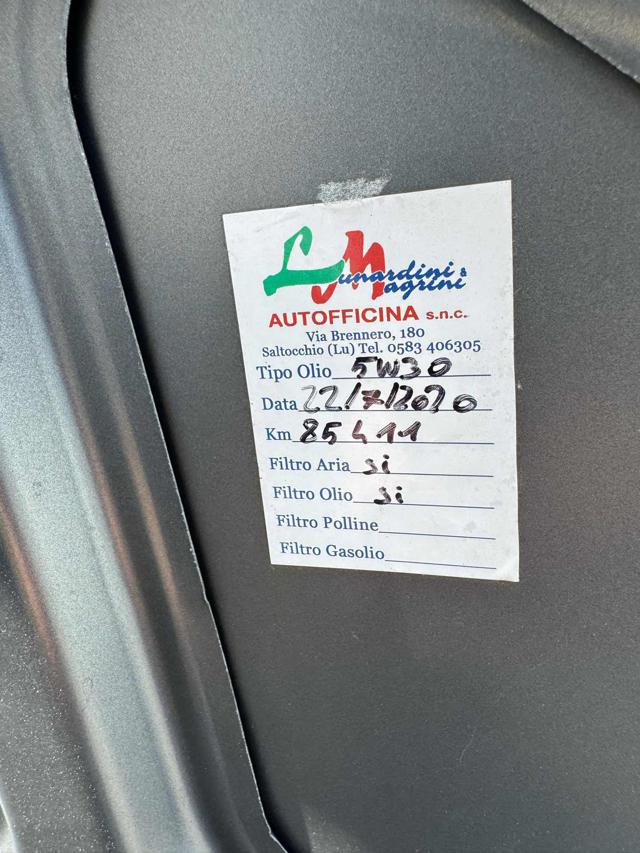 Lunardini &
Magrini
AUTOFFICINA s.n.c.
Via Brennero, 180
Saltocchio (Lu) Tel. 0583 406305
Tipo Olio 5W30
Data 22/7/2020
Km 85411
Filtro Aria si
Filtro Olio si
Filtro Polline
Filtro Gasolio